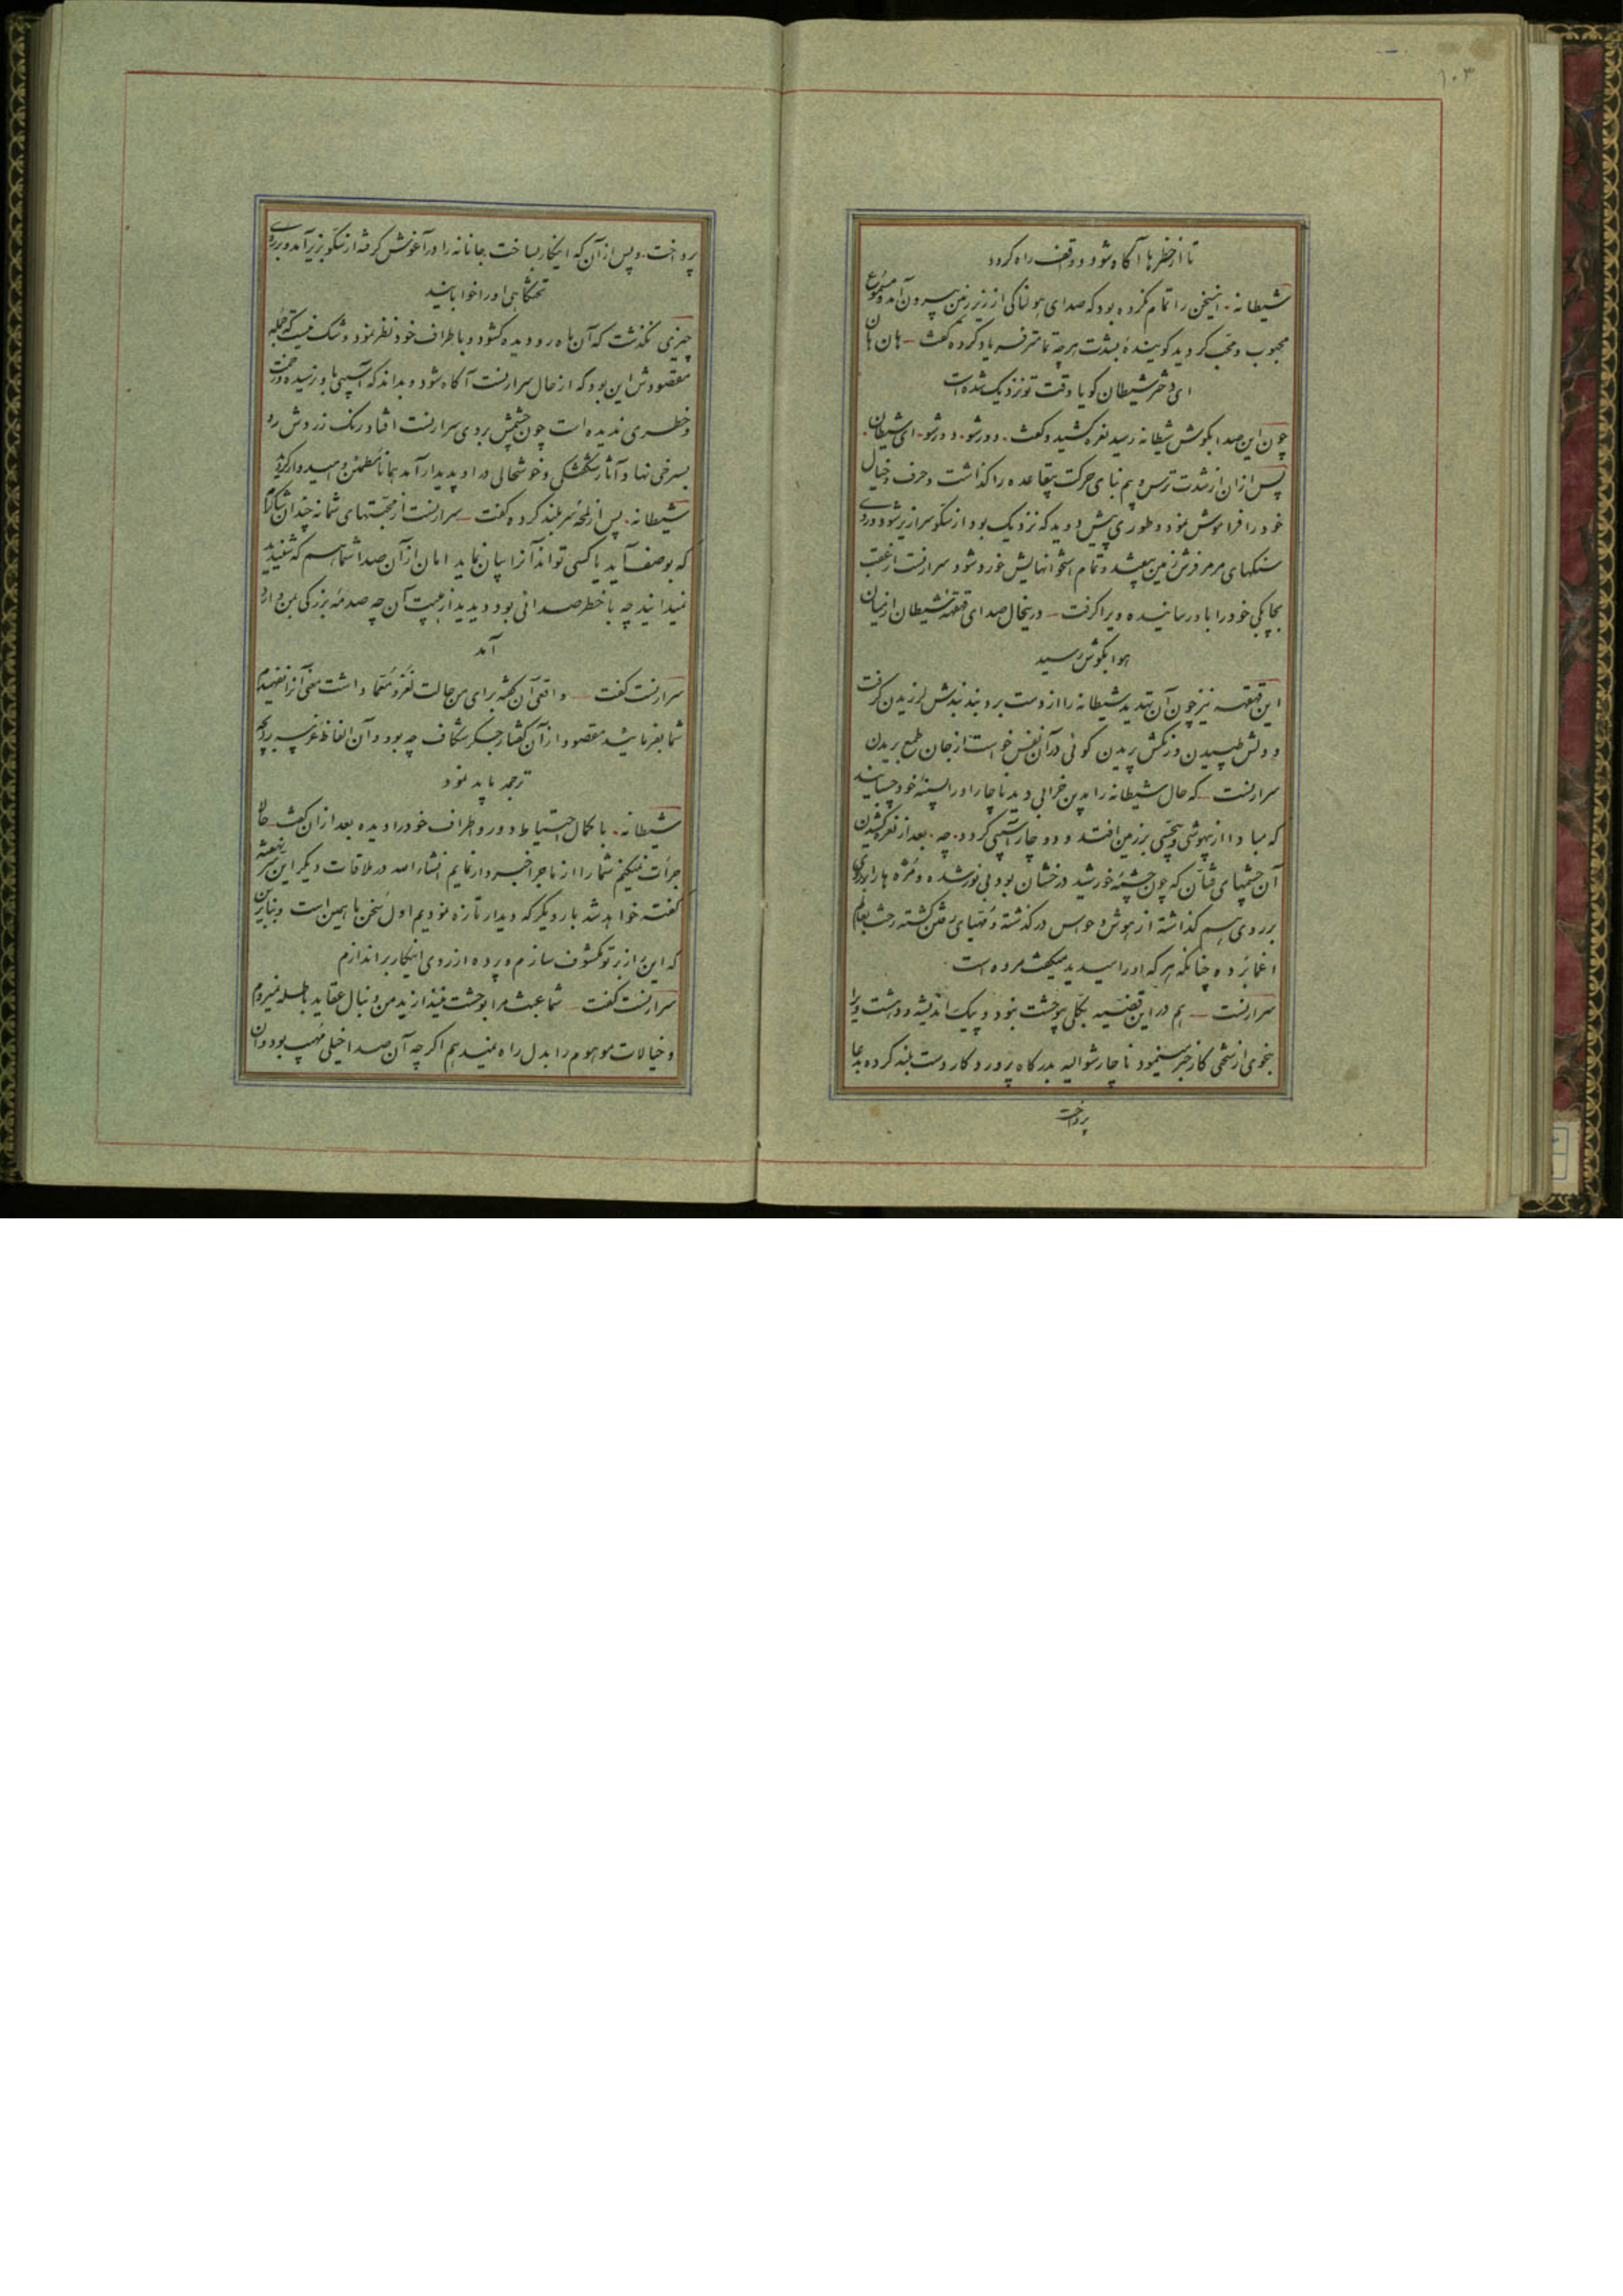 ۱۰۳
تا از خطرها آگاه شود و واقف راه گردد
شیطانه. اینسخن را تمام نکرده بود که صدای هولناکی از زیر زمین بیرون آمد و مسموع
محبوب و محب گردید گوینده بشدت هرچه تمامتر فریاد کرده گفت ــ هان هان
ای دختر شیطان گویا وقت تو نزدیک شده است
چون این صدا بگوش شیطانه رسید نعره کشید و گفت. دور شو. دور شو. ای شیطان.
پس از آن از شدت ترس و بیم بنای حرکت بیقاعده را گذاشت و حرف و خیال
خود را فراموش نمود و طوری پیش دوید که نزدیک بود از سکو سرازیر شود و روی
سنگهای مرمر فرش زمین بیفتد و تمام استخوانهایش خورد شود سرارنست از عقب
بچابکی خود را باو رسانیده ویرا گرفت ــ در اینحال صدای قهقهه شیطان از میان
هوا بگوش رسید
این قهقهه نیز چون آن تهدید شیطانه را از دست برد و بند بندش لرزیدن گرفت
و دلش طپیدن و رنگش پریدن گوئی در آن نفس خواست از جان طمع بریدن
سرارنست ــ که حال شیطانه را بدین خرابی دید ناچار او را بسینه خود چسبانید
که مبادا از بیهوشی و بیحسی بر زمین افتد و دوچار آسیبی گردد. چه. بعد از نعره کشیدن
آن چشمهای فتان که چون چشمه خورشید درخشان بود بی نور شده و مژه ها را
بر روی هم گذاشته از هوش و حواس در گذشته و مهیای رفتن گشته رخت بعالم
اغما برده چنانکه هر که او را میدید میگفت مرده است.
سرارنست ــ هم در این قضیه بکلی بیوحشت نبود و پیک اندیشه و دهشت ویرا
بنحوی از سختی کار خبر مینمود ناچار شوالیه بدرگاه پروردگار دست بلند کرده بدعا
پرداخت
پرداخت. و پس از آن که اینکار بساخت جانانه را در آغوش گرفته از سکو بزیر آمد و بر روی
تختگاهی او را خوابانید
چیزی نگذشت که آن ماه رو دیده گشود و باطراف خود نظر نمود و شک نیست که جمله
مقصودش این بود که از حال سرارنست آگاه شود و بداند که آسیبی باو نرسیده و زحمت
و خطری ندیده است چون چشمش بر روی سرارنست افتاد رنگ زردش رو
بسرخی نهاد و آثار شکفتگی و خوشحالی در او پدیدار آمد همانا مطمئن و امیدوار گردید
شیطانه. پس از لمحه سر بلند کرده گفت ــ سرارنست از محبتهای شما نه چندان شاکرم
که بوصف آید یا کسی تواند آنرا بیان نماید امان از آن صدا شما هم که شنیدید
نمیدانید چه با خطر صدائی بود و دیدید از هیبت آن چه صدمه بزرگی بمن وارد
آمد
سرارنست گفت ــ واقعی آن گفته برای من حالت لغز و معما داشت معنی آنرا نفهمیدم
شما بفرمائید مقصود از آن گفتار جگر شکاف چه بود و آن الفاظ غریبه را چه
ترجمه باید نمود
شیطانه. با کمال احتیاط دور و اطراف خود را دیده بعد از آن گفت ــ حالا
جرأت نمیکنم شما را از ماجرا خبردار نمایم انشاءالله در ملاقات دیگر این سر نهفته
گفته خواهد شد بار دیگر که دیدار تازه نمودیم اول سخن ما همین است و بنابراین
که این راز بر تو مکشوف سازم و پرده از روی اینکار براندازم
سرارنست گفت ــ شما عبث مرا بوحشت میندازید من دنبال عقاید باطله نمیروم
و خیالات موهوم را بدل راه نمیدهم اگرچه آن صدا خیلی مهیب بود و آن